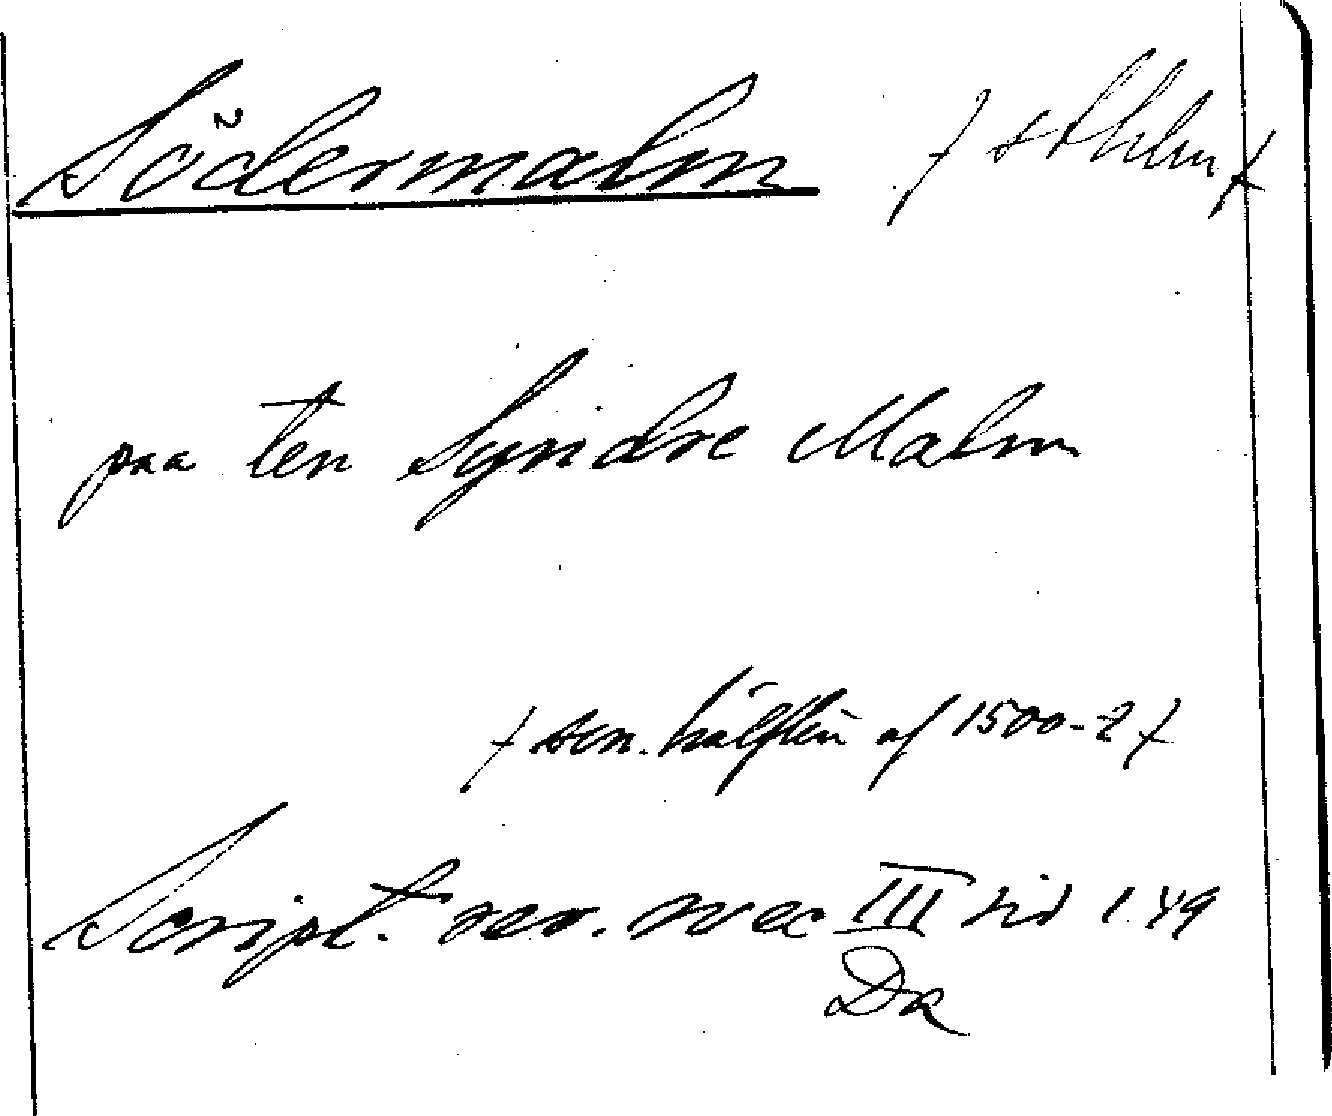 Södermalm /: Sthlm :/
paa ten Syndre Malm
/: sen. hälften af 1500-t :/
Script. rer. svec III sid 1.49
DR